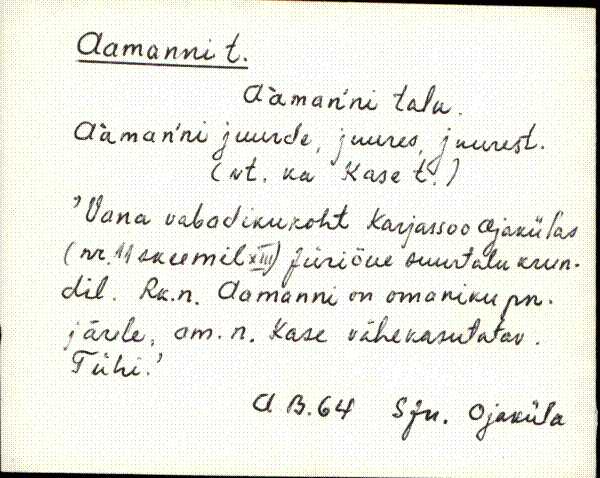 Aamanni t.
Aàman'ni talu.
Aàman'ni juurde, juures, juurest.
(vt. ka Kase t.)
'Vana vabadikukoht Karjassoo Ojakülas
(nr. 11 skeemil XIII) Jüriõue suurtalu krun-
dil. Rk.n. Aamanni on omaniku pn.
järele, om.n. Kase vähekasutatav.
Tühi.'
A B.64 SJn. Ojaküla